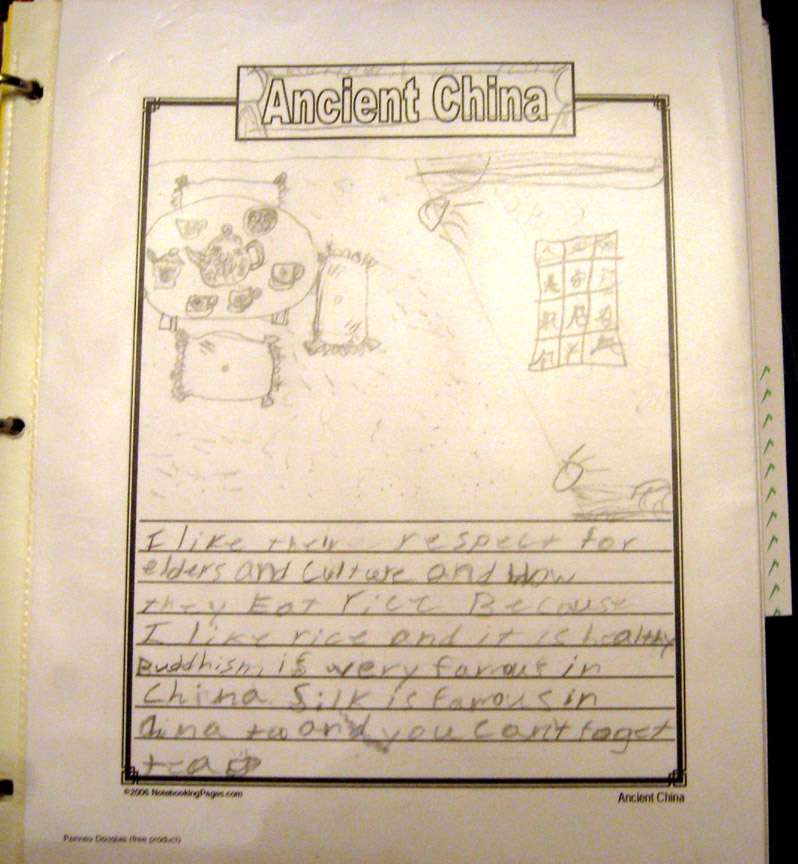 Ancient China
I like their respect for
elders and Culture and How
they Eat rice Because
I like rice and it is healthy
Buddhism is very famous in
China Silk is famous in
China to and you Can't foget
tea
©2006 NotebookingPages.com
Ancient China
(free product)